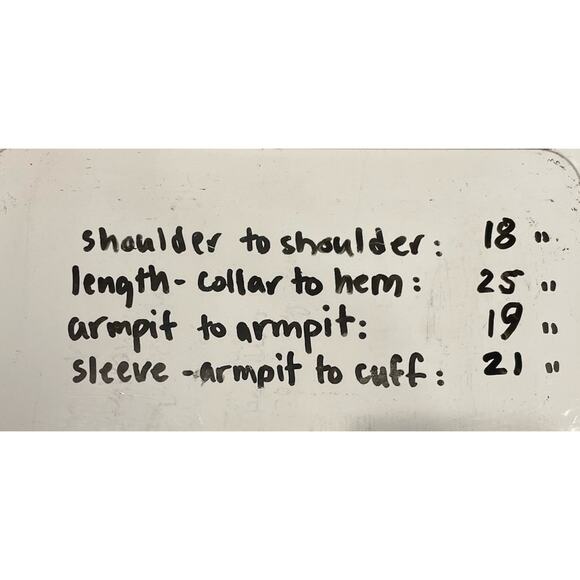 shoulder to shoulder: 18 "
length - collar to hem: 25 "
armpit to armpit: 19 "
sleeve - armpit to cuff: 21 "